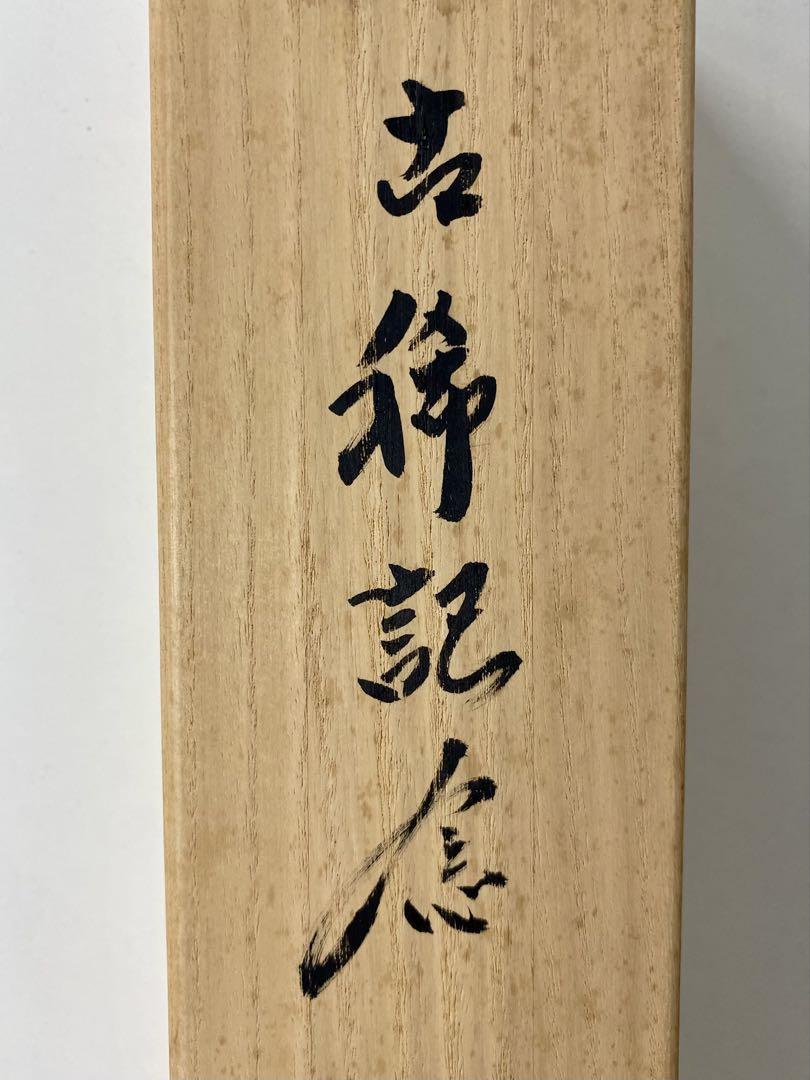 古稀記念